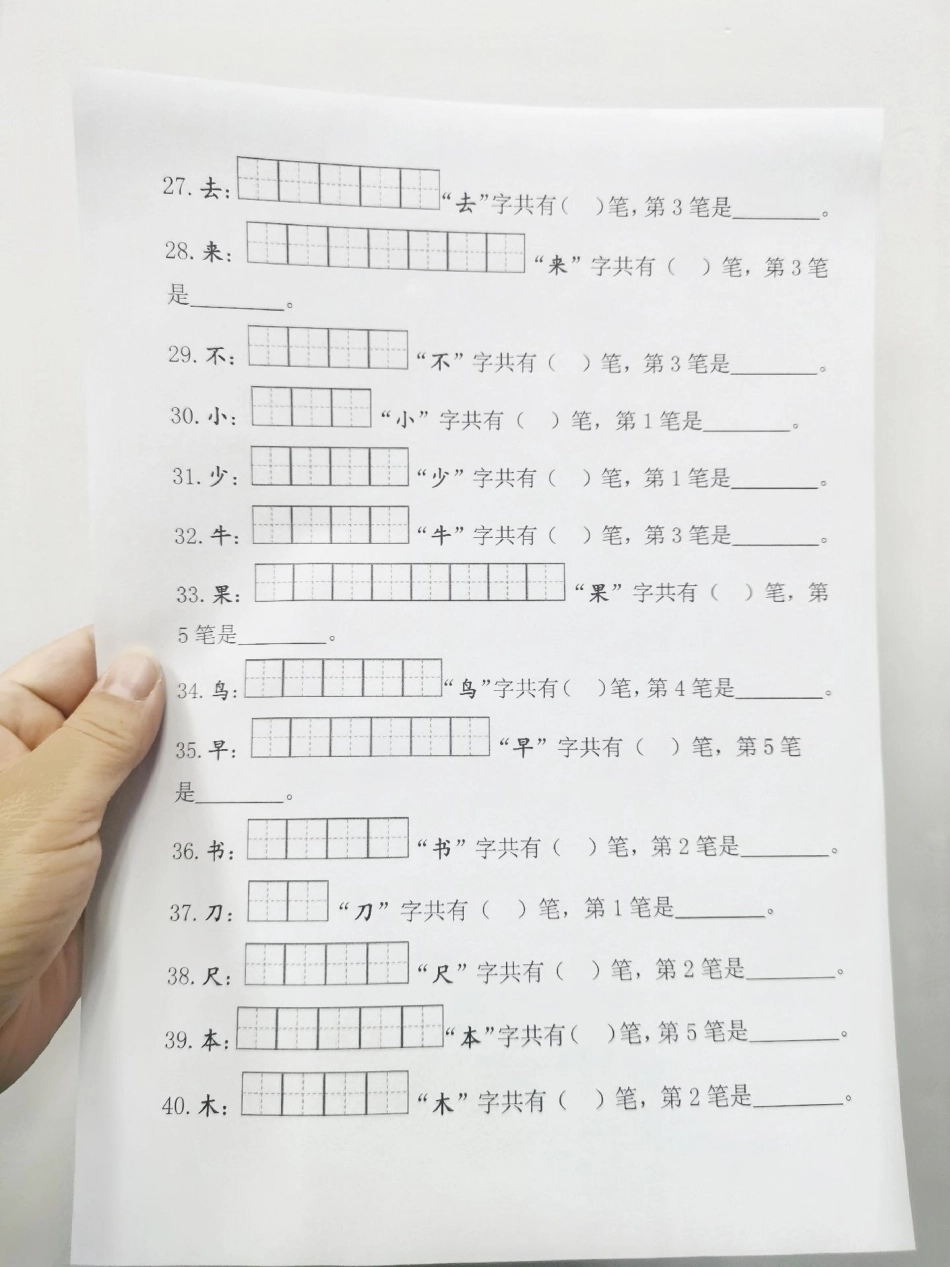 27. 去: “去”字共有( )笔, 第 3 笔是________。
28. 来: “来” 字共有 ( ) 笔, 第 3 笔
是________。
29. 不: “不” 字共有 ( ) 笔, 第 3 笔是________。
30. 小: “小” 字共有 ( ) 笔, 第 1 笔是________。
31. 少: “少” 字共有 ( ) 笔, 第 1 笔是________。
32. 牛: “牛” 字共有 ( ) 笔, 第 3 笔是________。
33. 果: “果” 字共有 ( ) 笔, 第
5 笔是________。
34. 鸟: “鸟”字共有( )笔, 第 4 笔是________。
35. 早: “早” 字共有 ( ) 笔, 第 5 笔
是________。
36. 书: “书” 字共有 ( ) 笔, 第 2 笔是________。
37. 刀: “刀” 字共有 ( ) 笔, 第 1 笔是________。
38. 尺: “尺” 字共有 ( ) 笔, 第 2 笔是________。
39. 本: “本”字共有( )笔, 第 5 笔是________。
40. 木: “木” 字共有 ( ) 笔, 第 2 笔是________。